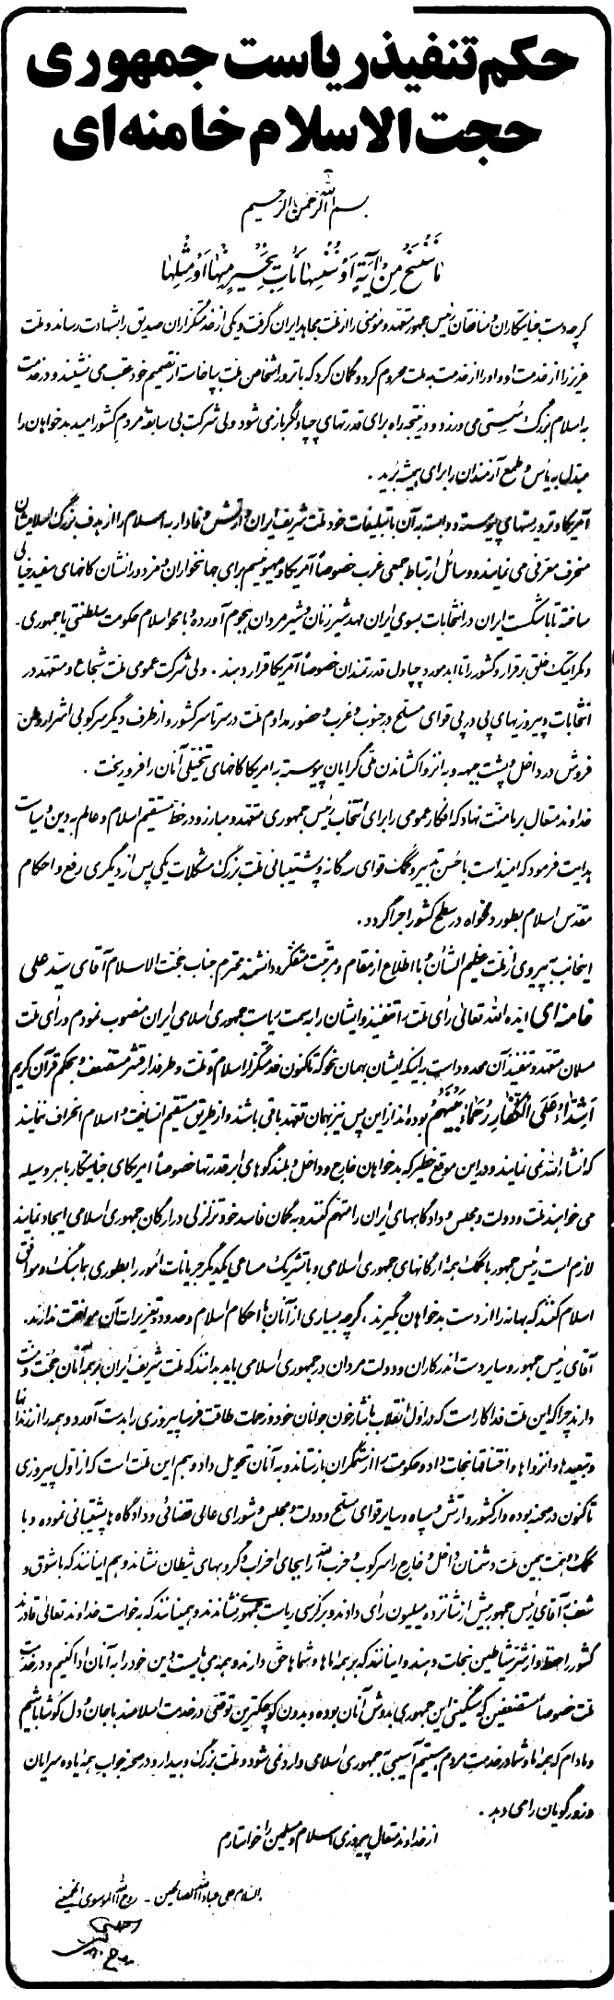 حکم تنفیذ ریاست جمهوری
حجت الاسلام خامنه‌ای
بسم الله الرحمن الرحیم
ما ننسخ من آیة او ننسها نأت بخیر منها او مثلها
گرچه دست جنایتکاران و منافقان رئیس جمهور متعهد و مؤمنی را از ملت مجاهد ایران گرفت و یکی از خدمتگزاران صدیق را بشهادت رساند و ملت
عزیز را از خدمت او و او را از خدمت به ملت محروم کرد و گمان کرد که با ترور اشخاص ملت بپاخاسته از تصمیم خود عقب می نشیند و در خدمت
به اسلام بزرگ سستی می ورزد و در نتیجه راه برای قدرتهای چپاولگر بازمی شود ولی شرکت بی سابقه مردم کشور امید بدخواهان را
مبدل به یأس و طمع آزمندان را برای همیشه برید .
آمریکا و تروریستهای پیوسته و وابسته به آن با تبلیغات خود ملت شریف ایران و ارتش وفادار به اسلام را از هدف بزرگ اسلامیشان
منحرف معرفی می نمایند و وسائل ارتباط جمعی غرب خصوصاً آمریکا و صهیونیسم برای جهانخواران و مزدورانشان کاخهای سفید خیالی
ساخته تا با شکست ایران در انتخابات بسوی ایران مهد شیرزنان و شیرمردان هجوم آورده و با محو اسلام حکومت سلطنتی یا جمهوری -
دمکراتیک خلق برقرار و کشور را تا ابد مورد چپاول قدرتمندان خصوصاً آمریکا قرار دهند . ولی شرکت عمومی ملت شجاع و متعهد در
انتخابات و پیروزیهای پی در پی قوای مسلح در جنوب و غرب و حضور مداوم ملت در سرتاسر کشور و از طرف دیگر سرکوبی اشرار وطن
فروش در داخل و پشت جبهه و به انزوا کشاندن ملی گرایان پیوسته به امریکا کاخهای تخیلی آنان را فرو ریخت .
خداوند متعال بر ما منت نهاد که افکار عمومی را برای انتخاب رئیس جمهوری متعهد و مبارز و در خط مستقیم اسلام و عالم به دین و سیاست
هدایت فرمود که امید است با حسن تدبیر و کمک قوای سه گانه و پشتیبانی ملت بزرگ مشکلات یکی پس از دیگری رفع و احکام
مقدس اسلام بطور دلخواه در سطح کشور اجرا گردد .
اینجانب به پیروی از ملت عظیم الشأن و با اطلاع از مقام و مرتبت متفکر و دانشمند محترم جناب حجت الاسلام آقای سید علی
خامنه ای ایده الله تعالی رأی ملت را تنفیذ و ایشان را به سمت ریاست جمهوری اسلامی ایران منصوب نمودم و رأی ملت
مسلمان متعهد و تنفیذ آن محدود است به اینکه ایشان بهمان نحو که تاکنون خدمتگزار اسلام و ملت و طرفدار قشر مستضعف و بحکم قرآن کریم
اشداء علی الکفار رحماء بینهم بوده اند از این پس نیز بهمان تعهد باقی باشند و از طریق مستقیم انسانیت و اسلام انحراف ننمایند
که انشاءالله نمی نمایند و در این موقع خطیر که بدخواهان خارج و داخل و بلندگوهای ابرقدرتها خصوصاً امریکای جنایتکار با هر وسیله
می خواهند ملت و دولت و مجلس و دادگاههای ایران را متهم کنند و به گمان فاسد خود تزلزلی در ارکان جمهوری اسلامی ایجاد نمایند
لازم است رئیس جمهور با کمک همه ارگانهای جمهوری اسلامی و با تشریک مساعی یکدیگر جریانات امور را بطوری هماهنگ و موافق
اسلام کنند که بهانه را از دست بدخواهان بگیرند ، گرچه بسیاری از آنان با احکام اسلام و حدود و تعزیرات آن موافقت ندارند.
آقای رئیس جمهور و سایر دست اندرکاران و دولت مردان در جمهوری اسلامی باید بدانند که ملت شریف ایران بر همه آنان حجت و منت
دارند چرا که این ملت فداکار است که در اول انقلاب با نثار خون جوانان خود و زحمات طاقت فرسا پیروزی را بدست آورد و همه را از زندانها
و تبعیدها و انزواها و اختناقها نجات داد و حکومت را از ستمگران بازستاند و به آنان تحویل داد و هم این ملت است که از اول پیروزی
تاکنون در صحنه بوده و از کشور و ارتش و سپاه و سایر قوای مسلح و دولت و مجلس و شورای عالی قضائی و دادگاه ها پشتیبانی نموده و با
کمک و همت همین ملت دشمنان داخل و خارج را سرکوب و حزب الله را بجای احزاب و گروههای شیطان نشاند و هم اینانند که با شوق و
شعف به آقای رئیس جمهور بیش از شانزده میلیون رأی دادند و بر کرسی ریاست جمهوری نشاندند و همینانند که به خواست خداوند تعالی قادرند
کشور را حفظ و از شر شیاطین نجات دهند و اینانند که بر همه ماها و شماها حق دارند و همه می بایست دین خود را به آنان ادا کنیم و در خدمت
ملت خصوصاً مستضعفین که سنگینی این جمهوری بدوش آنان بوده و بدون کوچکترین توقعی در خدمت اسلامند با جان و دل کوشا باشیم
و مادام که همه ما و شما در خدمت مردم هستیم آسیبی به جمهوری اسلامی وارد نمی شود و ملت بزرگ و بیدار و در صحنه جواب همه یاوه سرایان
و زورگویان را می دهد .
از خداوند متعال پیروزی اسلام و مسلمین را خواستارم
والسلام علی عبادالله الصالحین - روح الله الموسوی الخمینی